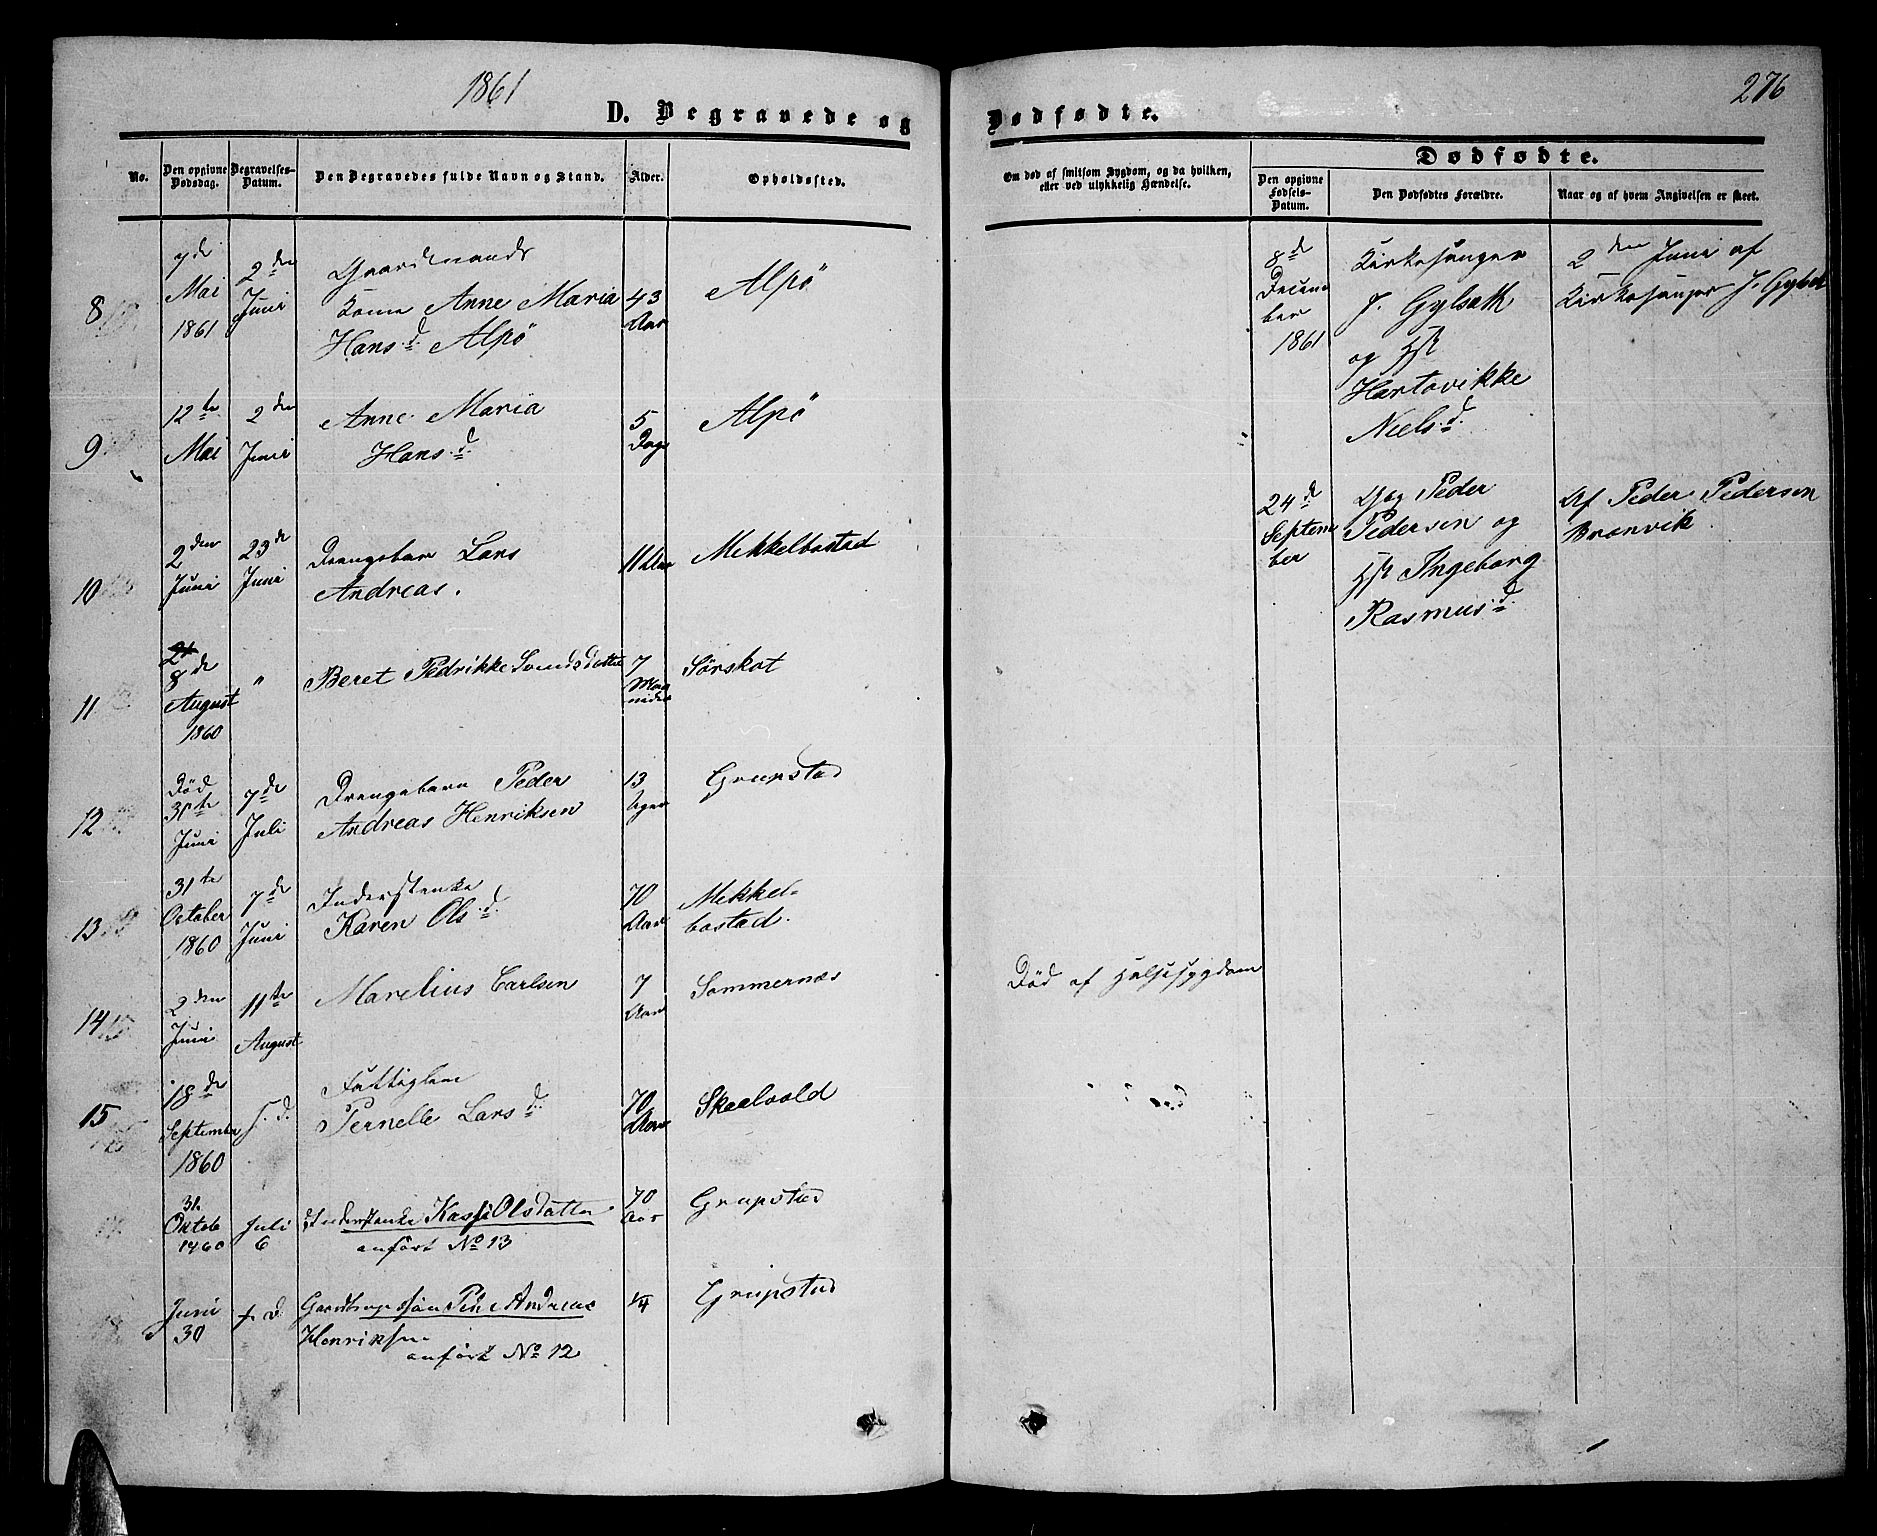 1861
276
D. Begravede og Dødfødte.
No.
Den opgivne Dødsdag.
Begravelses-Datum.
Den Begravedes fulde Navn og Stand.
Alder.
Opholdssted.
Om død af smitsom Sygdom, og da hvilken,
eller ved ulykkelig Hændelse.
Dødfødte.
Den opgivne Fødsels-Datum.
Den Dødfødtes Forældre.
Naar og af hvem Angivelsen er skeet.
8
7de Mai 1861
2den Juni
Gaardmands
Kone Anne Maria
Hansd. Alpö
43 Aar
Alpö
9
12te Mai
2den Juni
Anne Maria
Hansd.
5 Dage
Alpö
10
2den Juni
23de Juni
Drengebarn Lars
Andreas.
11 Uger
Mekkelbostad
11
8de August 1860
"
Beret Pedrikke
7 Maaneder
Sörskot
12
Död
30te Juni
7de Juli
Drengebarn Peder
Andreas Henriksen
13 Uger
Grupstad
13
31te October 1860
7de Juni
Inderstenke
Karen Olsd.
70 Aar
Mekkel-
bostad.
14
2den Juni
11te August
Marelius Carlsen
7 Aar
Sommernæs
Död af Halssygdom
15
18de September 1860
s. d.
Fattiglem
Pernelle Larsd.
70 Aar
Skeelvold
31. Oktob 1860
Juli 6
Olsdatter
anfört No 13
70 Aar
Grupstad
Juni 30
s d
Andreas
Henriksen
anfört No 12
1/4
Grupstad
8de December 1861
Kirkesanger
J. Gylseth
og Hst
Hartovikke
Nielsd.
2den Juni af
Kirkesanger J. Gylset
24de September
Gbg Peder
Pedersen og
Hst Ingeborg
Rasmusd.
Af Peder Pedersen
Bronvik